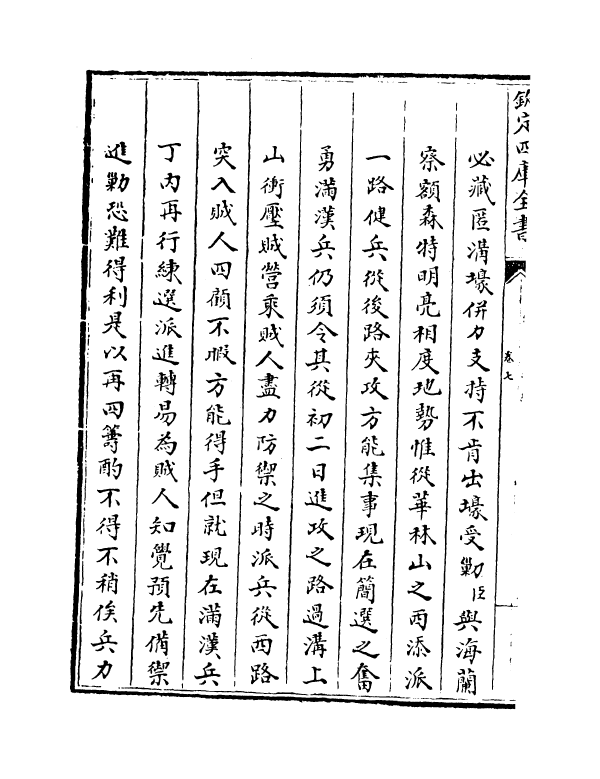 欽定四庫全書
卷七
必藏匿溝壕併力支持不肯出壕受勦臣與海蘭
察額森特明亮相度地勢惟從華林山之西添派
一路健兵從後路夾攻方能集事現在簡選之奮
勇滿漢兵仍須令其從初二日進攻之路過溝上
山衝壓賊營乘賊人盡力防禦之時派兵從西路
突入賊人四顧不暇方能得手但就現在滿漢兵
丁内再行練選派進轉易為賊人知覺預先備禦
進勦恐難得利是以再四籌酌不得不稍俟兵力